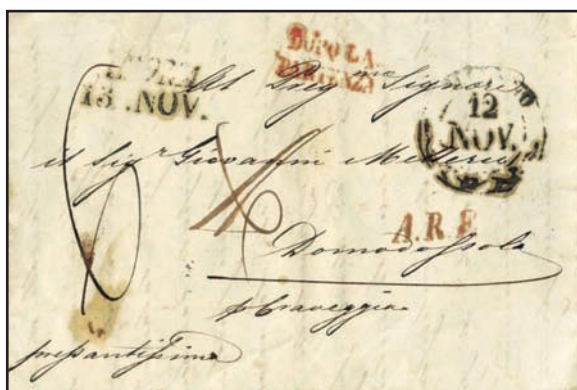 DOPO LA
PARTENZA
13 .NOV.
12
NOV.
Al Preg.mo Signore
il Sigr Giovanni Mellerio
A.R.F.
Domodossola
p Craveggia
pressantissima